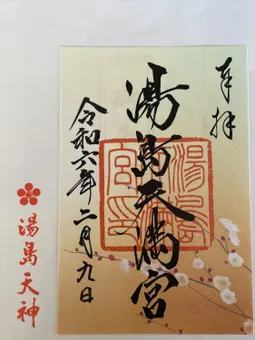 奉拝
湯島天満宮
令和六年二月九日
湯島宮印
湯島天神